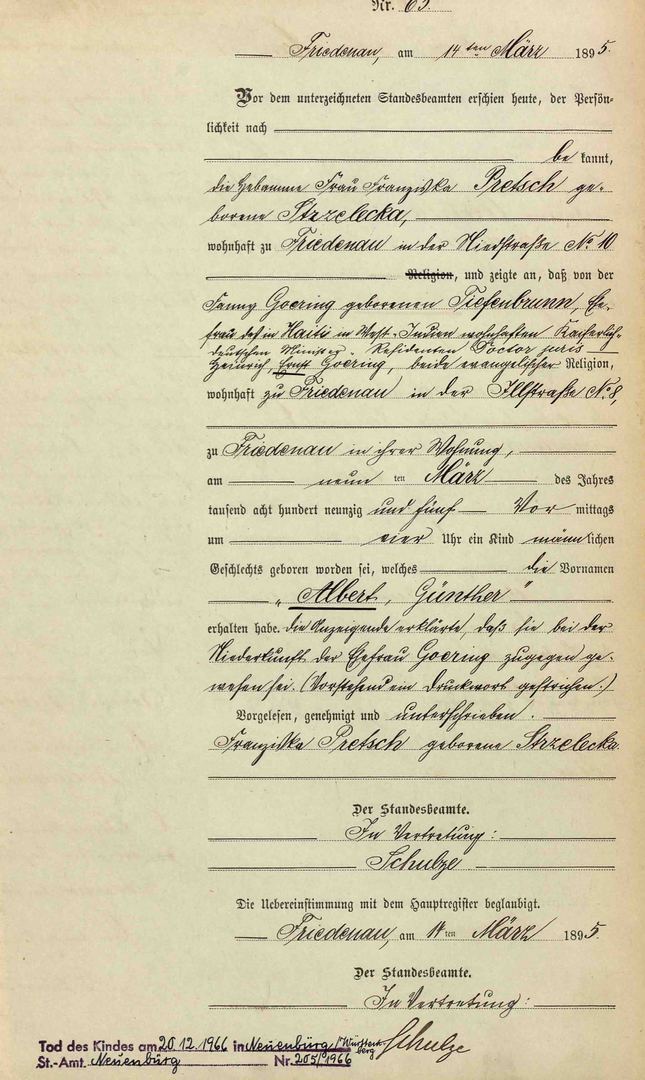 Nr. 63.
Friedenau, am 14 ten März 1895.
Vor dem unterzeichneten Standesbeamten erschien heute, der Persön-
lichkeit nach
be kannt,
die Hebamme Frau Franziska Pretsch ge-
borene Strzelecka,
wohnhaft zu Friedenau in der Niedstraße No 10
Religion, und zeigte an, daß von der
Fanny Goering geborenen Tiefenbrunn, Ehe-
frau des in Haiti in West-Indien wohnhaften Kaiserlich-
deutschen Minister-Residenten Doctor juris
Heinrich, Ernst Goering, beide evangelischer Religion,
wohnhaft zu Friedenau in der Illstraße No. 8,
zu Friedenau in ihrer Wohnung,
am neun ten März des Jahres
tausend acht hundert neunzig und fünf Vor mittags
um vier Uhr ein Kind männlichen
Geschlechts geboren worden sei, welches die Vornamen
„Albert, Günther"
erhalten habe. die Anzeigende erklärte, daß sie bei der
Niederkunft der Ehefrau Goering zugegen ge-
wesen sei. (Vorstehend ein Druckwort gestrichen.)
Vorgelesen, genehmigt und unterschrieben.
Franziska Pretsch geborene Strzelecka.
Der Standesbeamte.
In Vertretung:
Schulze
Die Uebereinstimmung mit dem Hauptregister beglaubigt.
Friedenau, am 14 ten März 1895.
Der Standesbeamte.
In Vertretung:
Schulze
Tod des Kindes am 20.12.1966 in Neuenbürg/Württemberg
St.-Amt. Neuenbürg Nr. 205/1966